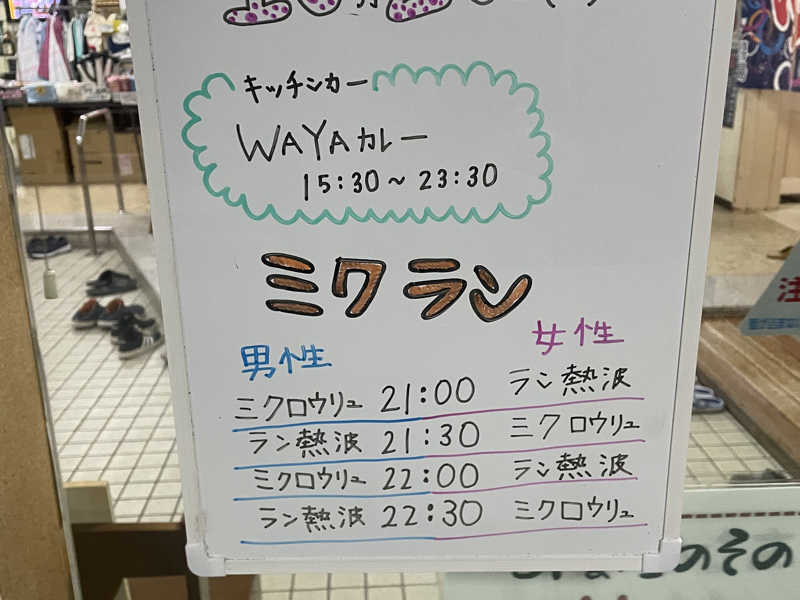 キッチンカー
WAYAカレー
15:30～23:30
ミクラン
男性 女性
ミクロウリュ 21:00 ラン熱波
ラン熱波 21:30 ミクロウリュ
ミクロウリュ 22:00 ラン熱波
ラン熱波 22:30 ミクロウリュ
注
のその